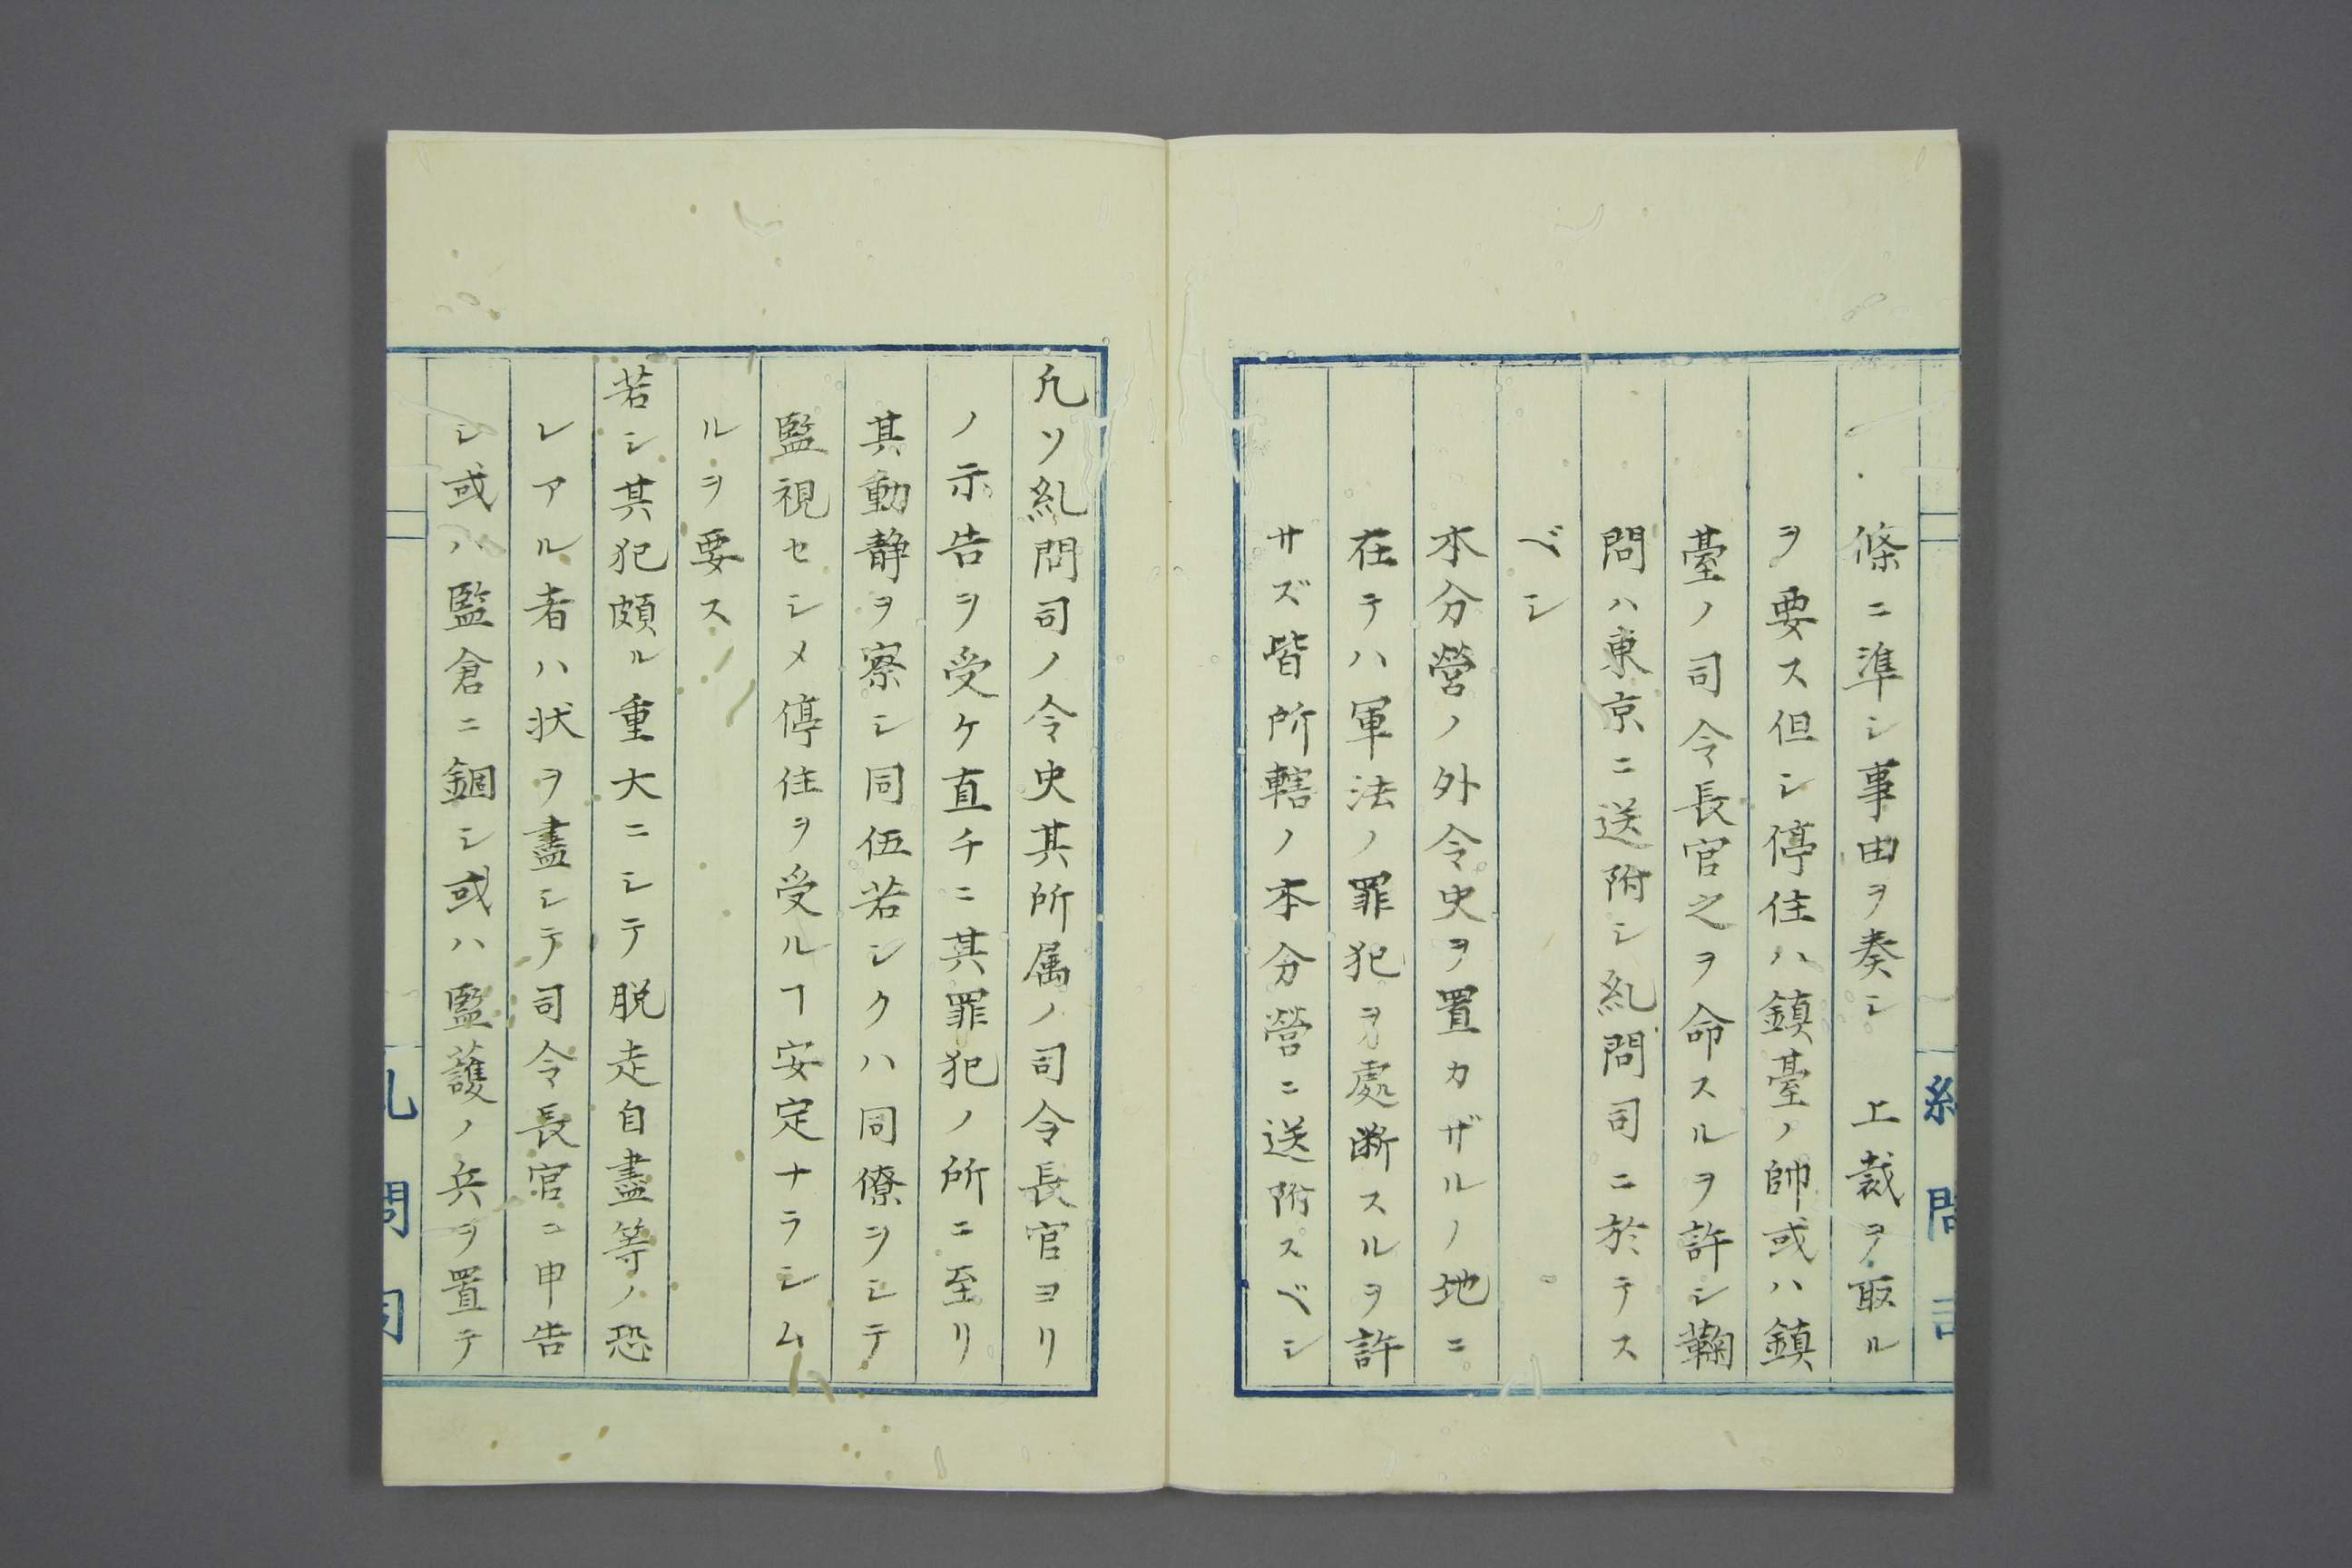 條ニ準シ事由ヲ奏シ　上裁ヲ取ル
ヲ要ス但シ停住ハ鎮臺ノ帥或ハ鎮
臺ノ司令長官之ヲ命スルヲ許シ鞠
問ハ東京ニ送附シ糺問司ニ於テス
ベシ
本分營ノ外令史ヲ置カザルノ地ニ
在テハ軍法ノ罪犯ヲ處断スルヲ許
サズ皆所轄ノ本分營ニ送附スベシ
凡ソ糺問司ノ令史其所属ノ司令長官ヨリ
ノ示告ヲ受ケ直チニ其罪犯ノ所ニ至リ
其動静ヲ察シ同伍若シクハ同僚ヲシテ
監視セシメ停住ヲ受ルヿ安定ナラシム
ルヲ要ス
若シ其犯頗ル重大ニシテ脱走自盡等ノ恐
レアル者ハ状ヲ盡シテ司令長官ニ申告
シ或ハ監倉ニ錮シ或ハ監護ノ兵ヲ置テ